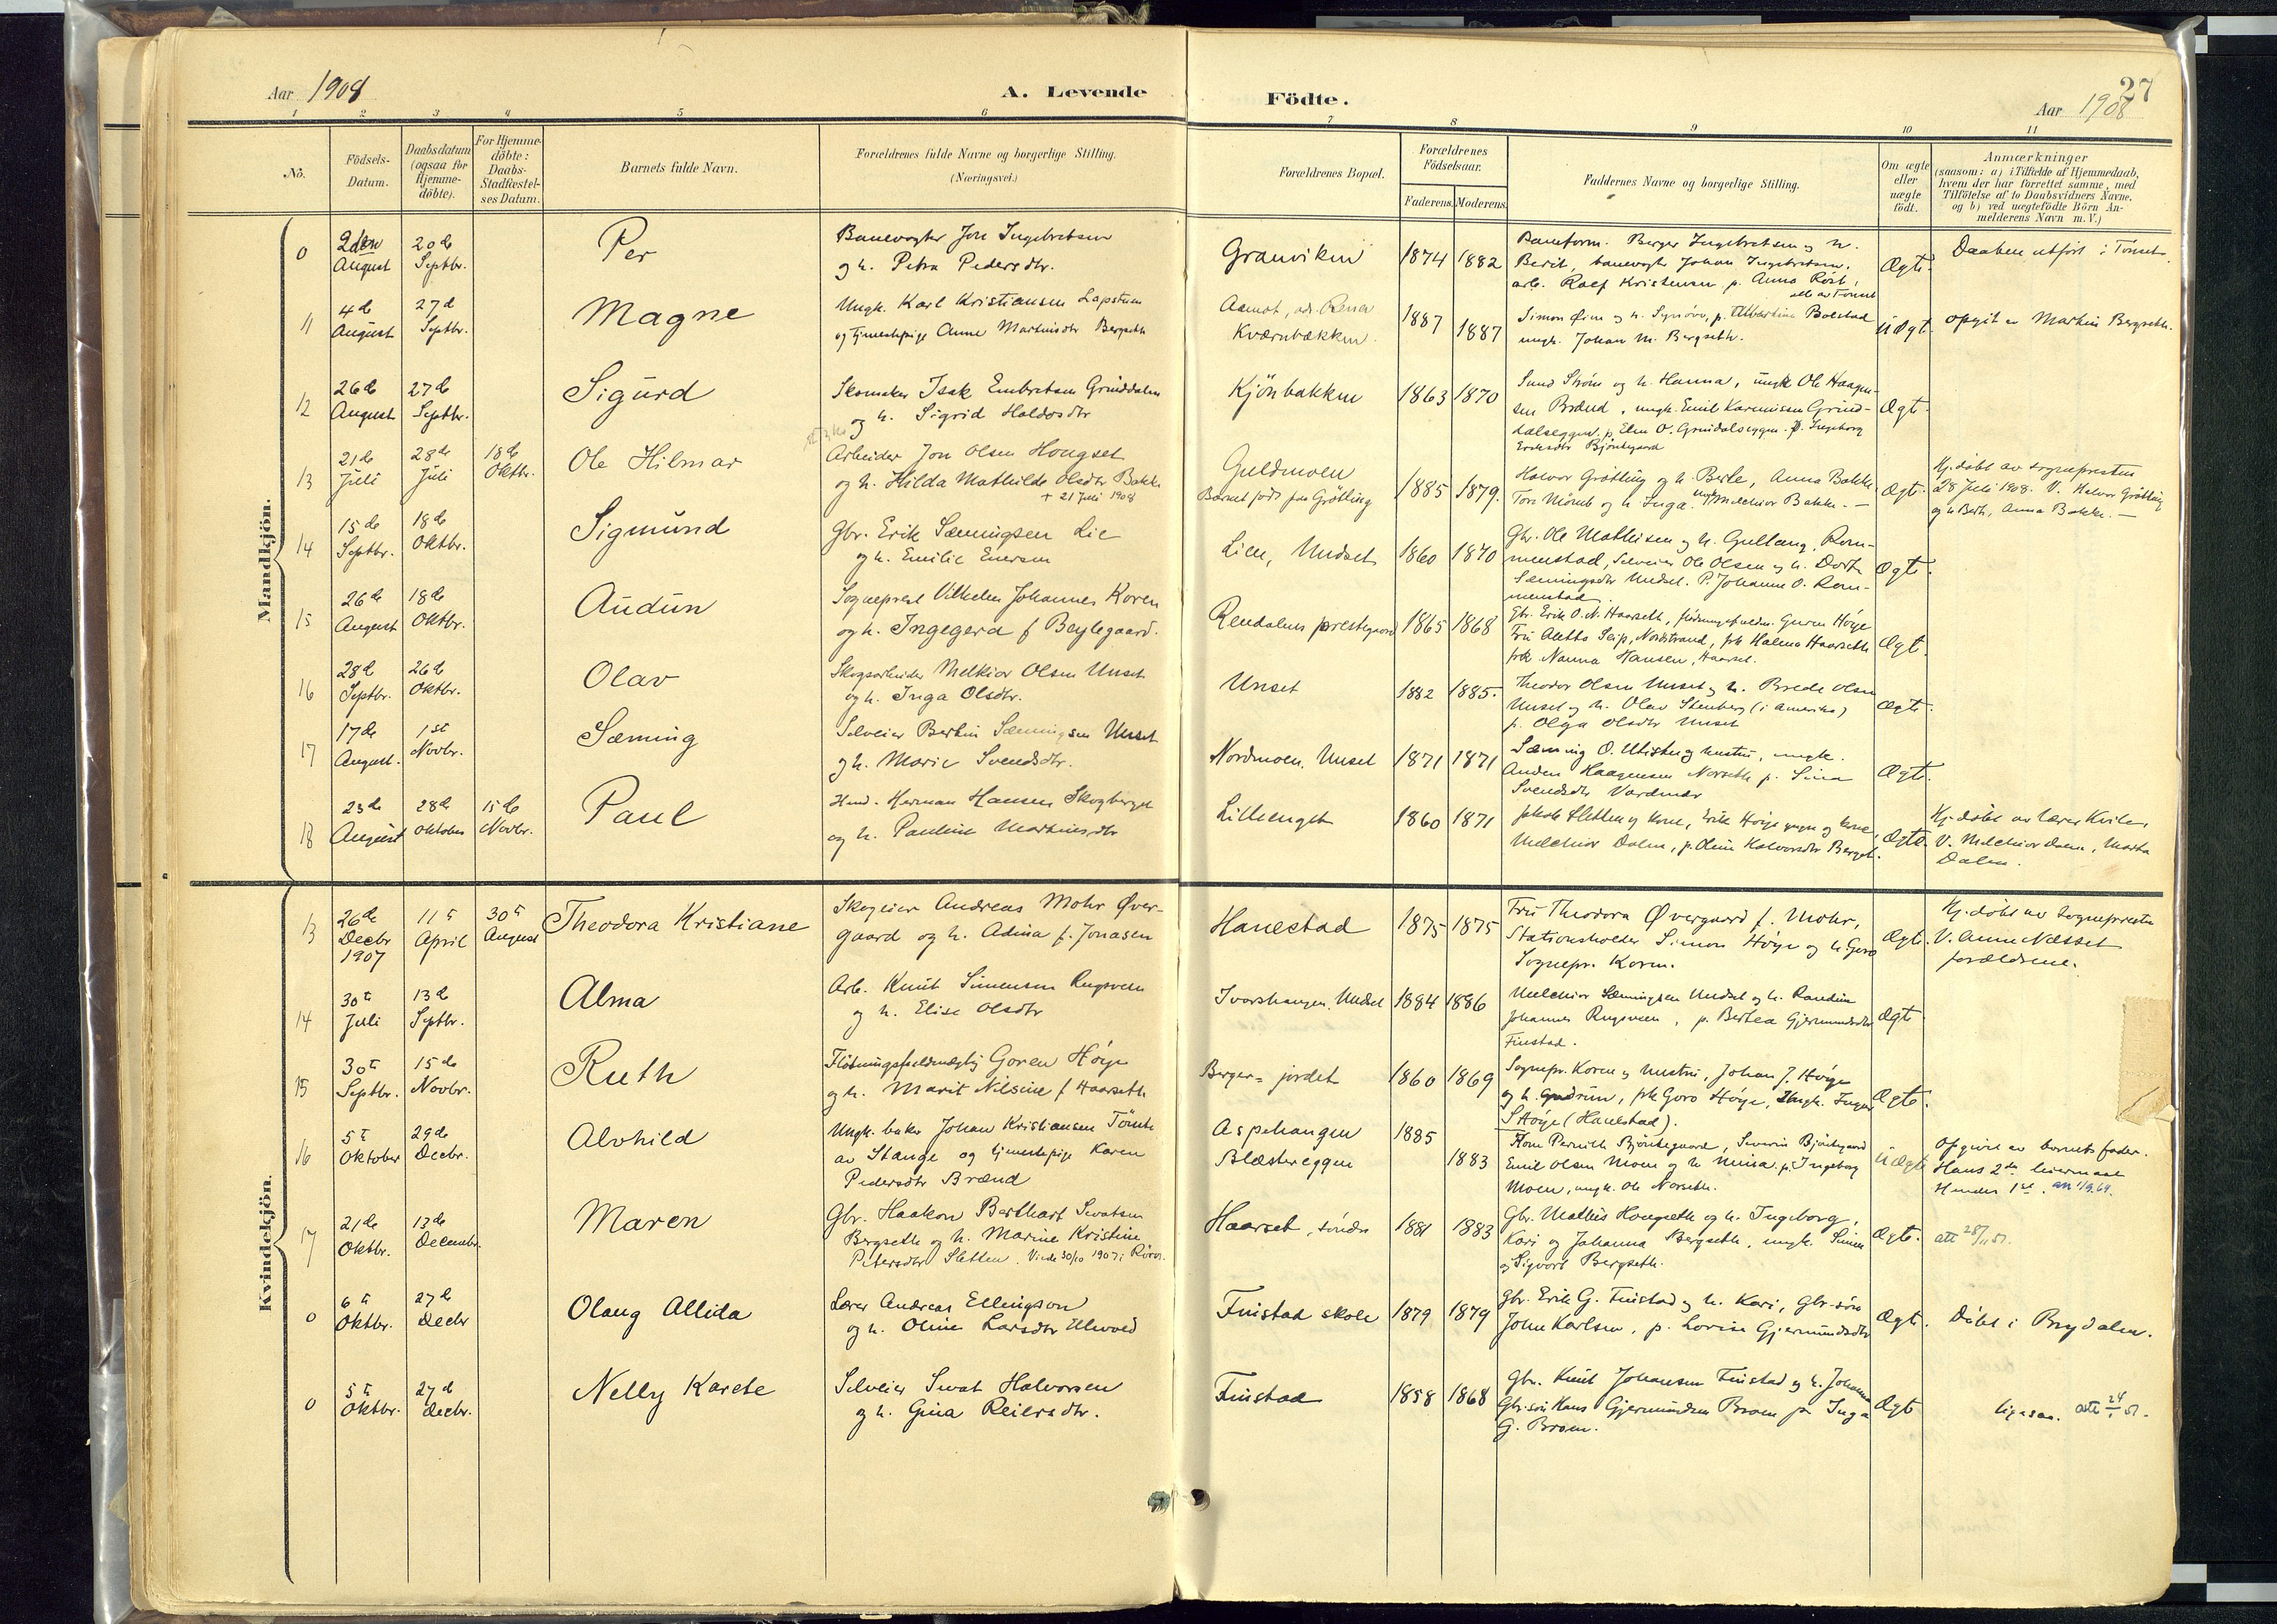 Aar 1908
A. Levende
Födte.
27
Aar 1908
1 2 3 4 5 6 7 8 9 10 11
No.
Födsels-
Datum.
Daabsdatum
(ogsaa for
Hjemme-
döbte).
For Hjemme-
döbte:
Daabs-
Stadfæstel-
ses Datum.
Barnets fulde Navn.
Forældrenes fulde Navne og borgerlige Stilling.
(Næringsvei.)
Forældrenes Bopæl.
Forældrenes
Födselsaar.
Faderens. Moderens.
Faddernes Navne og borgerlige Stilling.
Om ægte
eller
uægte
födt.
Anmærkninger
(saasom: a) i Tilfælde af Hjemmedaab,
hvem der har forrettet samme, med
Tilföielse af to Daabsvidners Navne,
og b) ved uægtefödte Börn An-
melderens Navn m. V.)
Mandkjön.
0
2den
August
20de
Septbr.
Per
Banevogter Jon Ingebretsen
og h. Petra Pedersdtr.
Granviken
1874 1882
Baneform. Berger Ingebretsen og h.
Berit, banevogt. Johan Ingebretsen,
arb. Rolf Kristensen p. Anna Röst,
alle av Tönset
Ægte.
Daaben utfört i Tönset.
11
4de
August
27d
Septbr.
Magne
Ungk. Karl Kristiansen Lapstuen
og tjenestepige Anne Martinsdtr Bergseth
Aamot, adr. Rena
Kværnbækken.
1887 1887
Simon Öien og h. Synöve, p. Albertine Bolstad
ungk. Johan M. Bergseth.
Uægt.
opgit av Martin Bergseth.
12
26de
August
27de
Septbr.
Sigurd
Skomaker Isak Embretsen Grinddalen
og h. Sigrid Haldorsdtr
Kjönbakken
1863 1870
Sund Ström og h. Hanna, ungk Ole Haagen-
sen Brænd, ungk. Emil Karenius​sen Grind-
dalseggen, p. Elen O. Grindalseggen. p. Ingeborg
Eriksdtr Björkegaard
Ægt.
13
21de
Juli
28de
Juli
18de
Oktbr.
Ole Hilmar
Arbeider Jon Olsen Hougset
og h. Hilda Mathilde Olsdtr Bakke
+ 21 Juli 1908
Guldmoen
Barnet födt paa Grötting
1885 1879.
Halvor Grötting og h. Berte, Anna Bakke
Tore Mömb og h Inga. Ungk Melchior Bakke. —
Ægt.
Hj. döbt av sognepresten
28 Juli 1908. V. Halvor Grötting
og h Berth, Anna Bakke. —
14
15de
Septbr.
18de
Oktbr.
Sigmund
Gbr. Erik Sæmingsen Lie
og h. Emilie Enersen
Lien, Undset
1860 1870
Gbr. Ole Mathisen og h. Gullaug, Rom-
menstad, Selveier Ole Olsen og h. Dorte
Sæmingsdtr Undset. P. Johanne O. Rom-
menstad.
Ægte.
15
26de
August
18de
Oktbr.
Audun
Sogneprest Vilhelm Johannes Koren
og h. Ingegerd f Beylegaard.
Rendalens prestegaard
1865 1868
Gbr. Erik O. N. Haarseth, flödningsfuldm. Goren Höye
Fru Aletta Seip, Nordstrand, frk Halma Haarseth
frk. Nanna Hansen, Haarset.
Ægt.
16
28d
Septbr.
26de
Oktbr.
Olav
Skogsarbeider Melkior Olsen Unset
og h. Inga Olsdtr.
Unset
1882 1885.
Theodor Olsen Unset og h. Brede Olsen
Unset og h. Olav Stenberg (i Amerika)
p. Olga Olsdtr Unset
Ægte.
17
17de
August.
1st
Novbr.
Sæming
Selveier Bertin Sæmingsen Unset
og h. Marie Svendsdtr.
Nordmoen, Unset
1871 1871
Sæming O. Utistu og hustru, ungk.
Anders Haagensen Norseth p. Sina
Svendsdtr Vardmær
Ægt.
18
23de
August
28d
Oktober
15de
Novbr.
Paul
Hmd. Herman Hansen Skogberget
og h. Pauline Martinusdtr
Lilleenget
1860 1871
Jakob Sletten og kone, Erik Höye yngre og kone,
Melchior Dalen, p. Oline Halvorsdtr Berget.
Ægte.
Hj. döbt av lærer Kvile,
V. Melchior Dalen, Marta
Dalen.
Kvindekjön.
13
26de
Decbr
1907
11te
April
30te
August
Theodora Kristiane
Skogeier Andreas Mohr Över-
gaard og h. Adina f. Jonasen
Hanestad
1875 1875
Fru Theodora Övergaard f. Mohr,
Stationsholder Simon Höye og h. Goro
Sognepr. Koren.
Ægt.
Hj. döbt av sognepresten
V. Anne Næsset
forældrene.
14
30te
Juli
13d
Septbr.
Alma
Arb. Knut Simensen Rugsveen
og h. Elise Olsdtr
Ivarshaugen, Undset
1884 1886
Melchior Sæmingsen Undset og h. Randine
Johannes Rugsveen, p. Bertea Gjermundsdtr
Finstad.
Ægt.
15
30te
Septbr.
15de
Novbr.
Ruth
Flötningsfuldmægtig Goren Höye
og h. Marit Nilsine f Haarseth
Berger- jordet
1860 1869
Sognepr. Koren og hustru, Johan J. Höye
og h. Gudrun, frk Goro Höye, Ungk. Ingvar
S Höye (Hanestad).
Ægte.
16
5te
Oktober
29de
Decbr.
Alvhild
Ungk. baker Johan Kristiansen Törnby
av Stange og tjenestepige Karen
Pedersdtr Brænd
Aspehaugen
Blæstereggen
1885
1883
Kone Pernille Björkegaard, Severin Björkegaard
Emil Olsen Moen og h Mina, p. Ingeborg
Moen, ungk. Ole Norseth.
Uægte
Opgivet av barnets fader.
Hans 2de leiermaal
Hendes 1ste. att 1/9.64.
17
21de
Oktbr.
13de
Decembr.
Maren
Gbr. Haakon Berthart Sivatsen
Bergseth og h. Marine Kristine
Petersdtr Sletten. Viede 30/10 1907 i Röros.
Haarset, söndre
1881 1883
Gbr. Mathis Hougseth og h. Ingeborg,
Kari og Johanna Bergseth, ungk. Simen
og Sigvart Bergseth.
Ægte.
att 28/11 51.
0
6te
Oktbr.
27de
Decbr
Olaug Allida
Lærer Andreas Ellingson
og h. Oline Larsdtr Ellevold
Finstad skole
1879 1879
Gbr. Erik G. Finstad og h. Kari, Gbr.sön
John Karlsen, p. Lovise Gjermundsdtr
Ægt.
Döbt i Brydalen.
0
5te
Oktbr.
27d
Decbr.
Nelly Karete
Selveier Sivat Halvorsen
og h. Gina Reiersdtr.
Finstad
1858 1868
Gbr. Knut Johansen Finstad og h. Johanna
Gbr.sön Hans Gjermundsen Broen p. Inga
G. Broen.
Ægt
ligesaa. att 24/1 51.